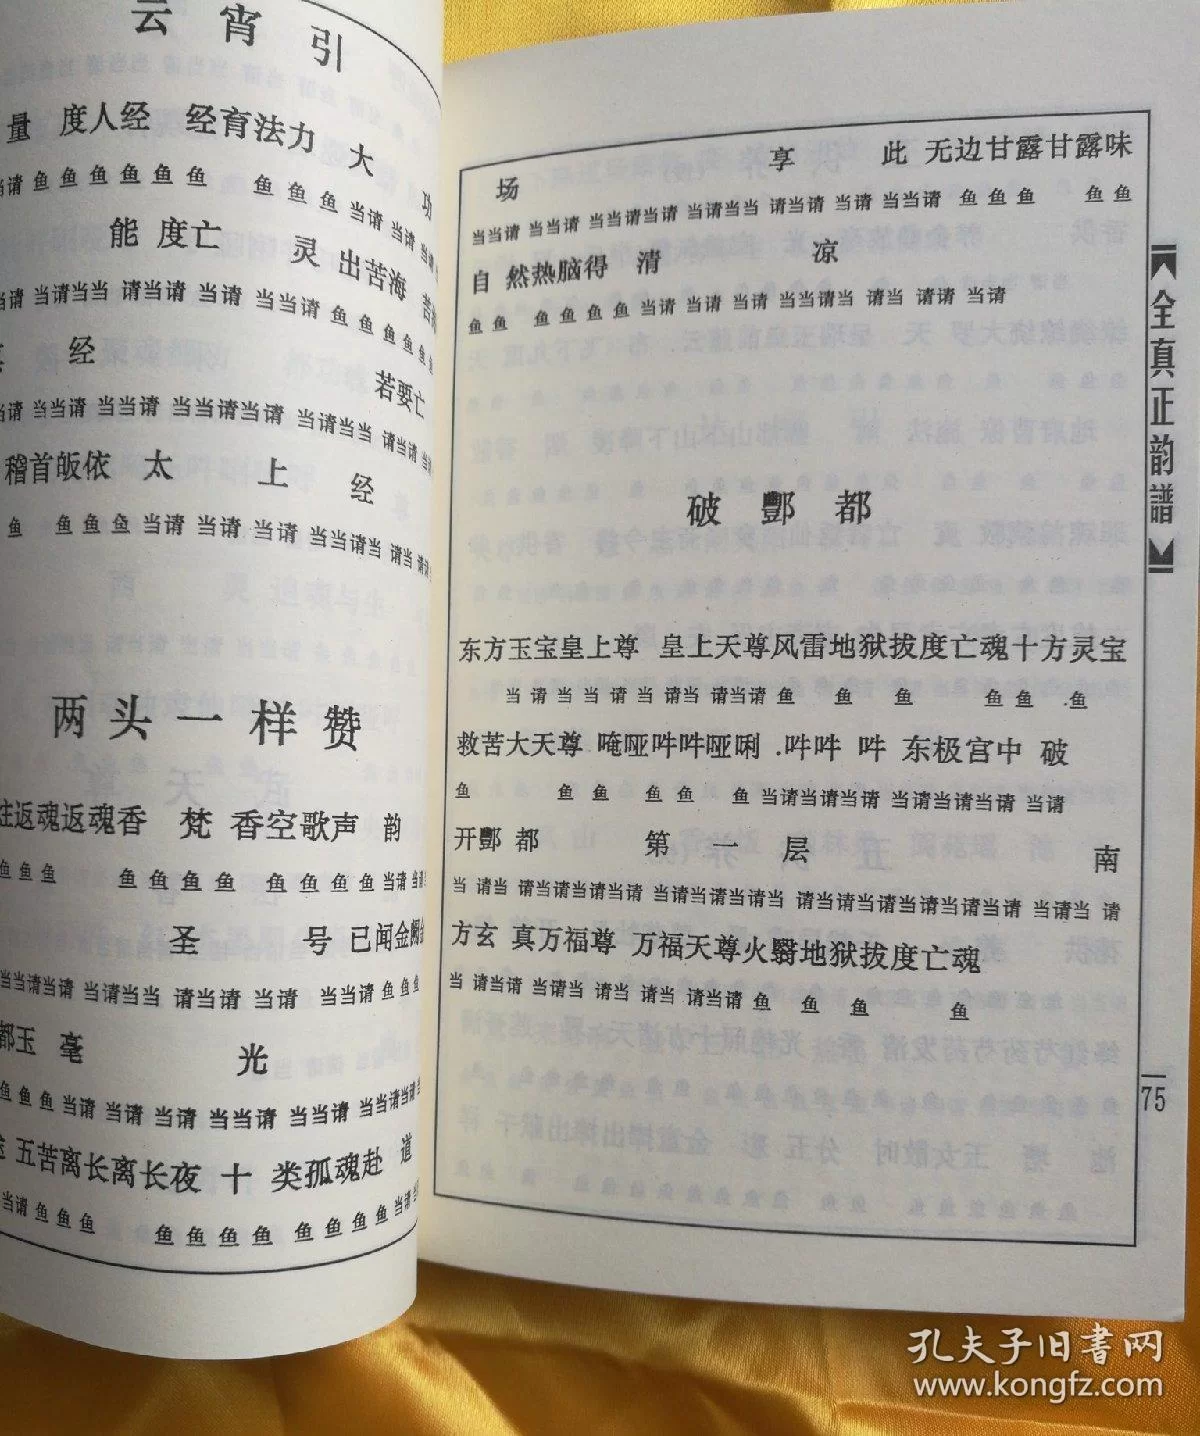 云宵引
量 度人经 经育法力 大 功
当请 鱼 鱼 鱼 鱼 鱼 鱼 鱼 鱼 鱼 当请 当请
能 度亡 灵 出苦海
当请 当请当当 请当请 当请 当当请 鱼 鱼 鱼 鱼
经 若要亡
当请 当当请 当当请 当当请当请 当请当当 请当请
稽首皈依 太 上 经
鱼 鱼 鱼 鱼 当请 当请 当请 当当请当 请当
两头一样赞
返魂返魂香 梵 香空歌声 韵
鱼 鱼 鱼 鱼 鱼 鱼 鱼 鱼 鱼 鱼 鱼 当请
圣 号 已闻金阙
当当请当请 当请当当 请当请 当请 当当请 鱼 鱼 鱼
都玉 毫 光
鱼 鱼 鱼 当请 当请 当请 当当请 当当请 当当请当请
五苦离长离长夜 十 类孤魂赴 道
当请 鱼 鱼 鱼 鱼 鱼 鱼 鱼 鱼 鱼 鱼 鱼 当请
场 享 此 无边甘露甘露味
当当请 当当请 当当请当请 当请当当 请当请 当请 当当请 鱼 鱼 鱼 鱼 鱼
自 然热脑得 清 凉
鱼 鱼 鱼 鱼 鱼 鱼 当请 当请 当请 当当请当 请当 请请 当请
破酆都
东方玉宝皇上尊 皇上天尊风雷地狱拔度亡魂十方灵宝
当 请 当 当 请 当 请当 请当请 鱼 鱼 鱼 鱼 鱼 鱼
救苦大天尊 唵哑吽吽哑唎 吽吽 吽 东极宫中 破
鱼 鱼 鱼 鱼 鱼 鱼 当请当请当请 当请当请当请 当请
开酆 都 第 一 层 南
当 请当 请当请当请当请 当请当请当请当 请当请当请当请当请当请 当请当 请
方玄 真万福尊 万福天尊火翳地狱拔度亡魂
当 请当请 当请当 请当 请当 请当请 鱼 鱼 鱼 鱼
全真正韵譜
75
孔夫子旧书网
www.kongfz.com